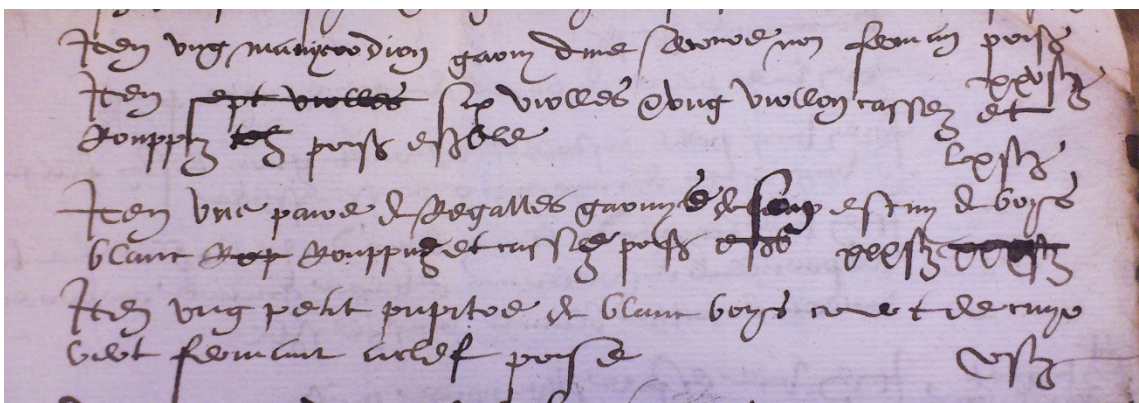 Item vng manycordion garny dune serrure non fermant prisé
xxvs tz
Item sept violles six violles & vng viollon cassez et
Rouppuz prisé ensemble
lxs tz
Item vne paire de Regalles garnye de leur estuy de boys
blanc Rop Rouppuz et cassez prisé xxxs tz
Item vng petit pupitre de blanc boys couvert de cuyr
vert fermant a clef prisé
vs tz